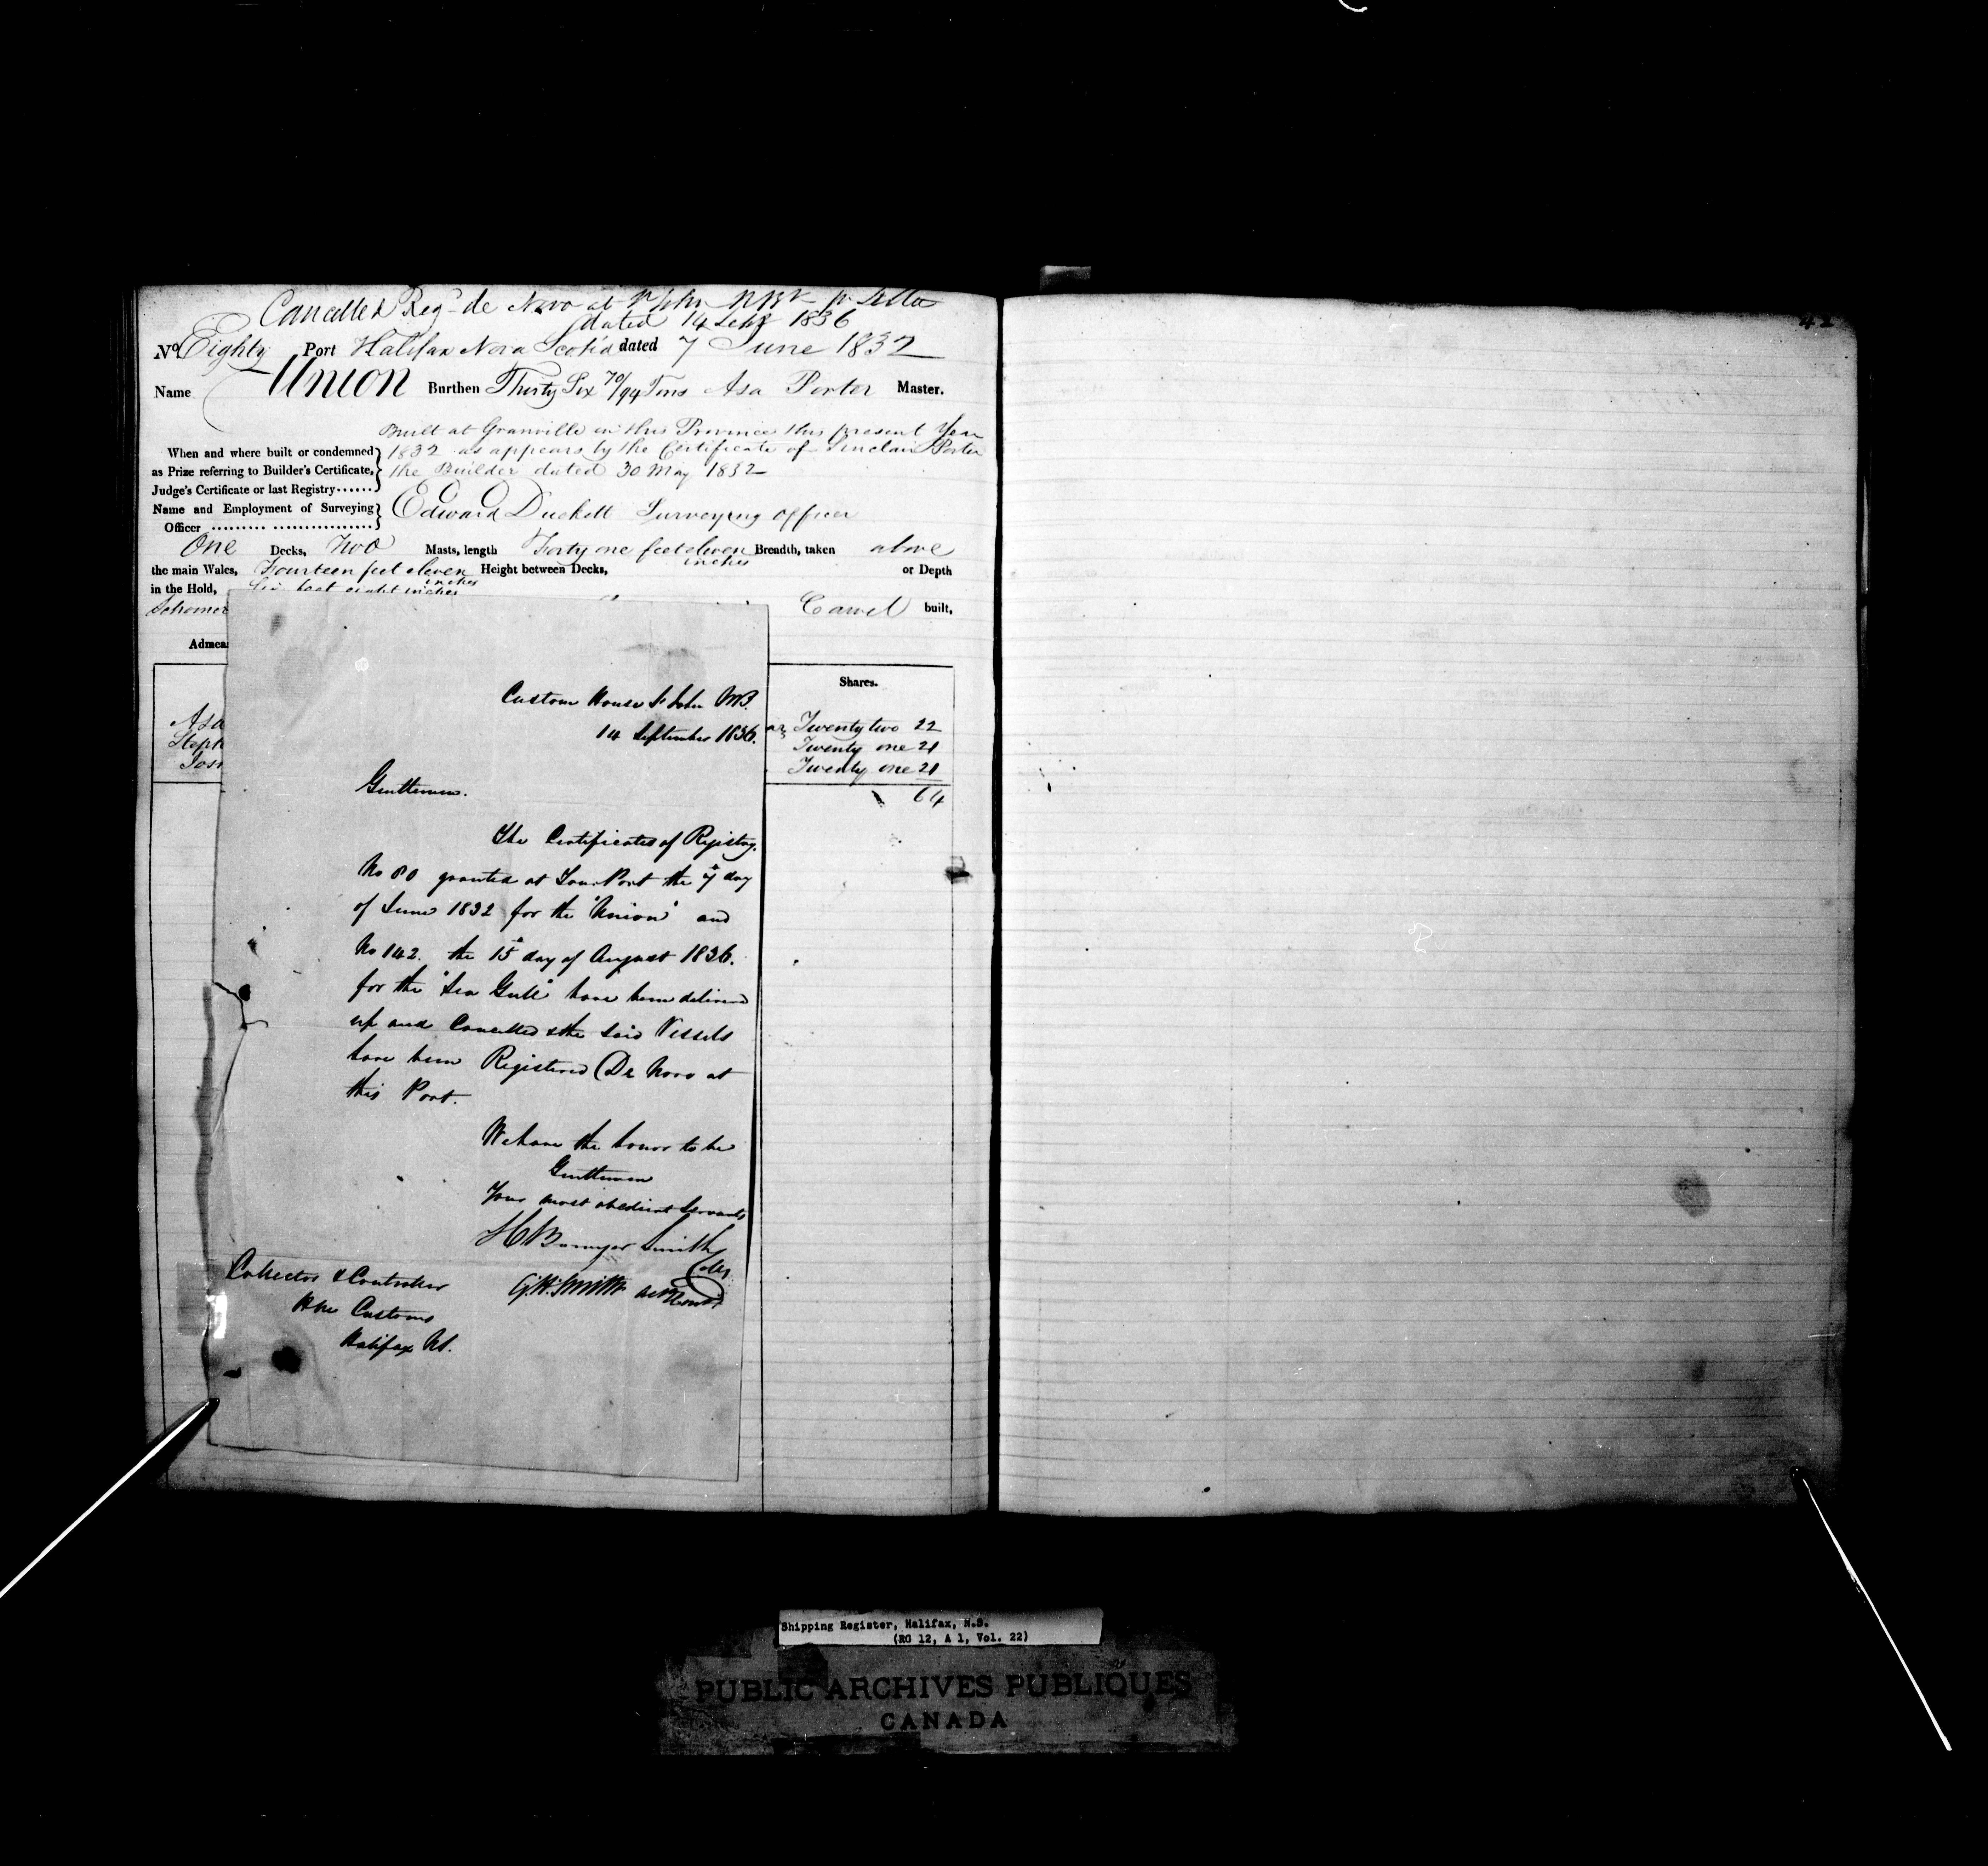 Cancelled Reg- de Novo at St John NBk pr Letter
dated 14 Sept 1836
No Eighty Port Halifax Nova Scotia dated 7 June 1832
Name Union Burthen Thirty Six 70/94 Tons Asa Porter Master.
Built at Granville in this Province this present Year
When and where built or condemned 1832 as appears by the Certificate of Sinclair Porter
as Prize referring to Builder's Certificate, the Builder dated 30 May 1832
Judge's Certificate or last Registry......
Name and Employment of Surveying Edward Duckett Surveying officer
Officer ......... .................
One Decks, Two Masts, length Forty one feet eleven inches Breadth, taken above
the main Wales, Fourteen feet eleven inches Height between Decks, or Depth
in the Hold, Six feet eight inches
Schooner Carvel built,
Admea
Shares.
Asa Twenty two 22
Steph Twenty one 21
Jos Twenty one 21
64
Custom House St John NB.
14 September 1836.
Gentlemen.
The Certificates of Registry.
No 80 granted at Your Port the 7th day
of June 1832 for the "Union" and
No 142. the 15th day of August 1836.
for the "Sea Gull" have been delivered
up and Cancelled & the said Vessels
have been Registered De Novo at
this Port.
We have the honor to be
Gentlemen
Your most obedient Servants
H Bowyer Smith
Collr
G.H. Smith
Collector & Controller
HM Customs
Halifax NS.
Shipping Register, Halifax, N.S.
(RG 12, A 1, Vol. 22)
PUBLIC ARCHIVES PUBLIQUES
CANADA